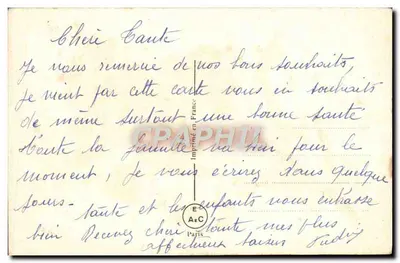 Chère Tante
Je vous remercie de nos bons souhaits,
je vient par cette carte vous en souhaits
de même surtout une bonne santé
toute la famille va bien pour le
moment, je vous écrirez dans quelque
jours.
tante et les enfants vous embrasse
bien Recevez chère tante, mes plus
affectueux baisers
Imprimé en France
E
A&C
Paris